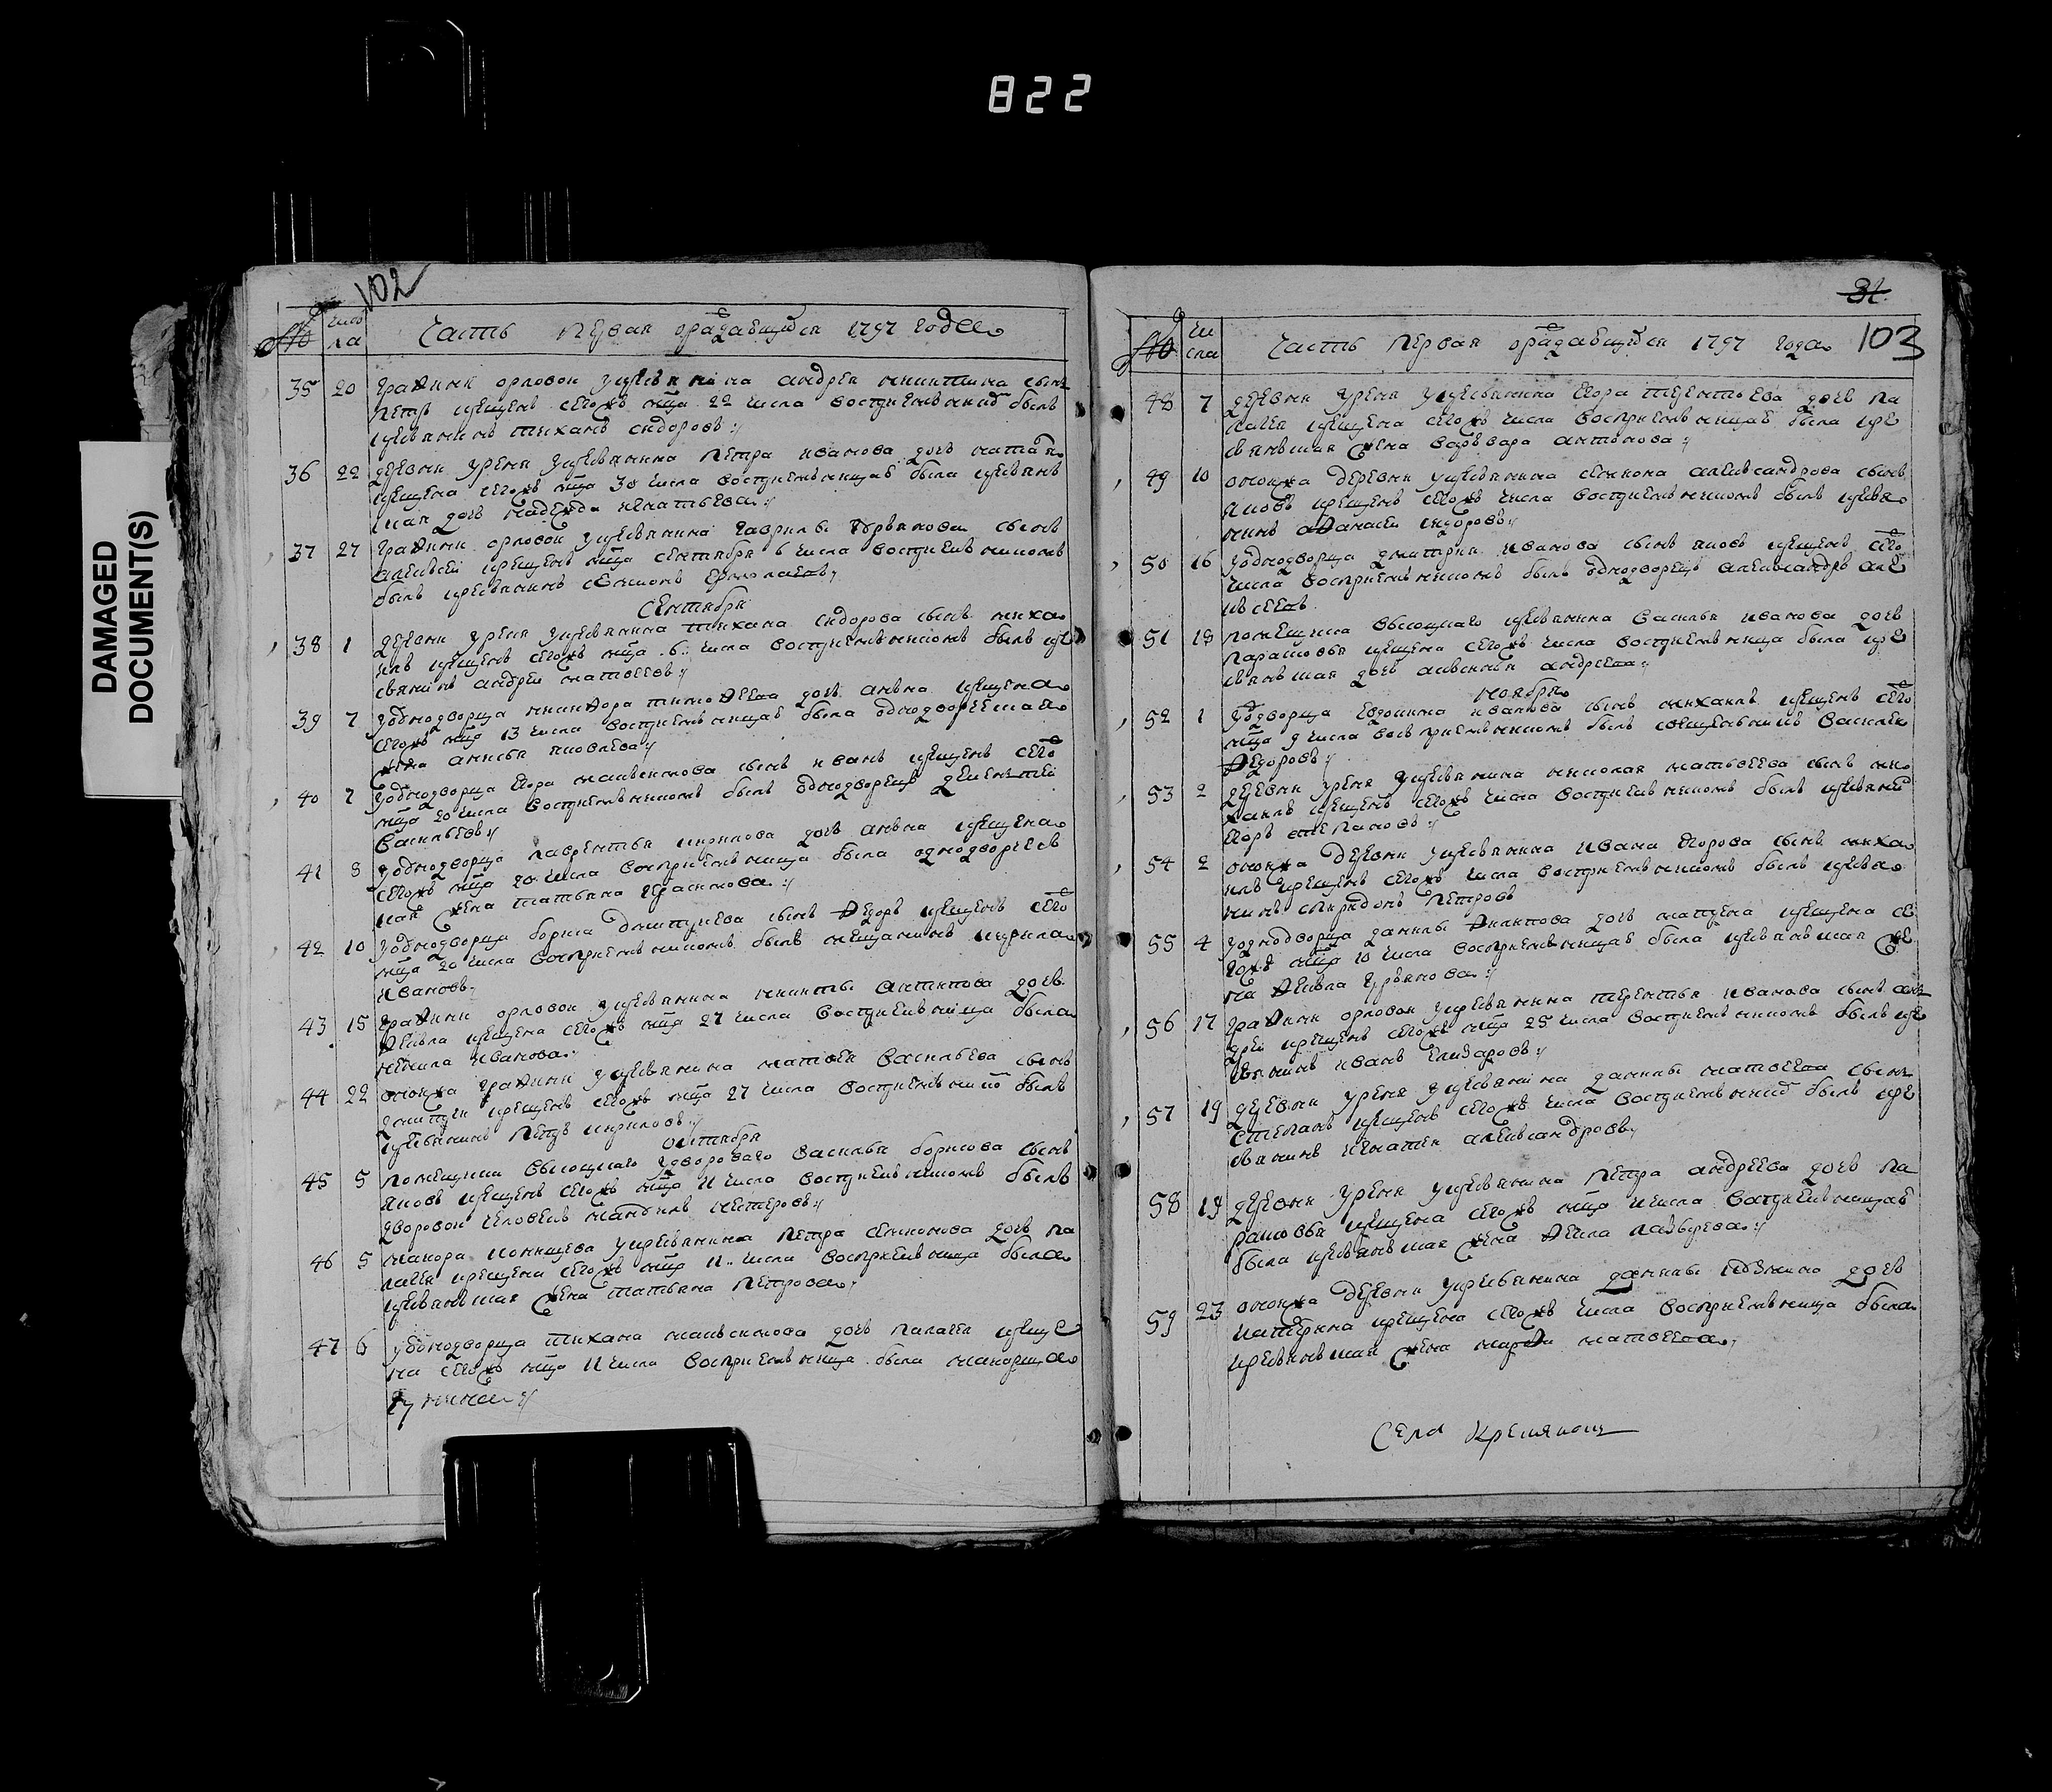 822
DAMAGED
DOCUMENT(S)
102
№ числа Часть первая орождающихся 1797 года
35 20 Графини орловой укрестьянина андрея никитина сынъ
петръ крещенъ сегожъ мца 22 числа восприемникъ былъ
крестьянинъ тиханъ сидоровъ
36 22 деревни уреня укрестьянина петра иванова дочь наталья
крещена сегожъ мца 30 числа восприемницаю была крестьянская
дочь надежда игнатьева
37 27 Графини орловой укрестьянина гаврилы гурьянова сынъ
алексей крещенъ мца сентября 6 числа восприемникомъ
былъ крестьянинъ ермолаевъ
Сентября
38 1 деревни уреня укрестьянина тихана сидорова сынъ миха
илъ крещенъ сегожъ мца 6 числа восприемникомъ былъ кре
стьянинъ андрей матвеевъ
39 7 уоднодворца никифора тимофеева дочь анна крещена
сегожъ мца 13 числа восприемницаю была однодворческая
жена анисья яковлева
40 7 уоднодворца егора максимова сынъ иванъ крещенъ сего
мца 20 числа восприемникомъ былъ однодворецъ дементей
васильевъ
41 8 уоднодворца лаврентья кирилова дочь анна крещена
сегожъ мца 20 числа восприемница была однодворческ
кая жена татьяна герасимова
42 10 уоднодворца бориса дмитриева сынъ федоръ крещенъ сего
мца 20 числа восприемникомъ былъ мещанинъ кирила
ивановъ
43 15 Графини орловой укрестьянина никиты антипова дочь
фекла крещена сегожъ мца 27 числа восприемница была
ненила иванова
44 22 оножа графини укрестьянина матвея васильева сынъ
дмитрей крещенъ сегожъ мца 27 числа восприемникъ былъ
крестьянинъ петръ кириловъ
октября
45 5 помещика высоцкаго удвороваго василья борисова сынъ
яковъ крещенъ сегожъ мца 11 числа восприемникомъ былъ
дворовой человекъ нестеровъ
46 5 маиора укрестьянина петра симонова дочь па
лагея крещена сегожъ мца 11 числа восприемница была
крестьянская жена татьяна петрова
47 6 уоднодворца тихана максимова дочь палагея креще
на сегожъ мца 11 числа восприемница была маиорша
31
103
№ числа Часть первая орождающихся 1797 года
48 7 деревни уреня укрестьянина егора терентьева дочь па
лагея крещена сегожъ числа восприемницаю была кре
стьянская жена варвара антонова
49 10 оножа деревни укрестьянина симиона александрова сынъ
яковъ крещенъ сегожъ числа восприемникомъ былъ крестья
нинъ афанасей сидоровъ
50 16 уоднодворца дмитрия иванова сынъ яковъ крещенъ сего
числа восприемникомъ былъ однодворецъ александръ але
ксеевъ
51 18 помещика высоцкаго укрестьянина василья иванова дочь
парасковья крещена сегожъ числа восприемница была кре
стьянская дочь аксинья андреева
ноября
52 1 уодворца евдокима иванова сынъ михаилъ крещенъ сего
мца 9 числа восприемникомъ былъ священникъ василей
федоровъ
53 2 деревни уреня укрестьянина николая матвеева сынъ ми
хаилъ крещенъ сегожъ числа восприемникомъ былъ крестьянинъ
егоръ степановъ
54 2 оножа деревни укрестьянина ивана егорова сынъ миха
илъ крещенъ сегожъ числа восприемникомъ былъ крестья
нинъ спиридонъ петровъ
55 4 уоднодворца данилы филипова дочь матрена крещена се
гожъ мца 10 числа восприемницаю была крестьянская же
на фекла гурьянова
56 17 Графини орловой укрестьянина терентья иванова сынъ ан
дрей крещенъ сегожъ мца 25 числа восприемникомъ былъ кре
стьянинъ иванъ елизаровъ
57 19 деревни уреня укрестьянина данилы матвеева сынъ
степанъ крещенъ сегожъ числа восприемникъ былъ кре
стьянинъ игнатей александровъ
58 19 деревни уреня укрестьянина петра андреева дочь па
расковья крещена сегожъ мца числа восприемницаю
была крестьянская жена фекла
59 23 оножа деревни укрестьянина данилы козмина дочь
катерина крещена сегожъ числа восприемница была
крестьянская жена марфа матвеева
Села